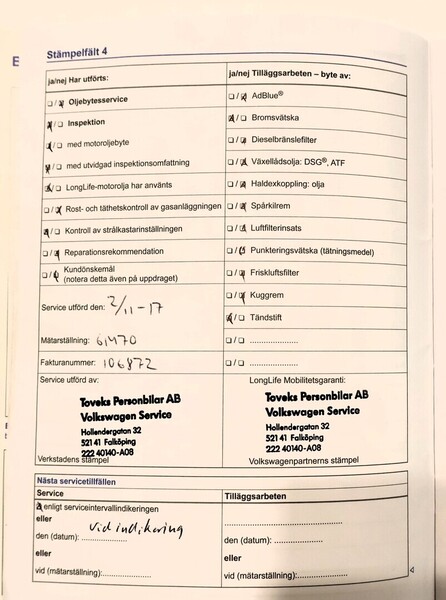 Stämpelfält 4
ja/nej Har utförts:
Oljebytesservice
Inspektion
med motoroljebyte
med utvidgad inspektionsomfattning
LongLife-motorolja har använts
Rost- och täthetskontroll av gasanläggningen
Kontroll av strålkastarinställningen
Reparationsrekommendation
Kundönskemål
(notera detta även på uppdraget)
Service utförd den: 2/11-17
Mätarställning: 61470
Fakturanummer: 106872
ja/nej Tilläggsarbeten – byte av:
AdBlue®
Bromsvätska
Dieselbränslefilter
Växellådsolja: DSG®, ATF
Haldexkoppling: olja
Spårkilrem
Luftfilterinsats
Punkteringsvätska (tätningsmedel)
Friskluftsfilter
Kuggrem
Tändstift
Service utförd av:
Toveks Personbilar AB
Volkswagen Service
Hollendergatan 32
521 41 Falköping
222 40140-A08
Verkstadens stämpel
LongLife Mobilitetsgaranti:
Toveks Personbilar AB
Volkswagen Service
Hollendergatan 32
521 41 Falköping
222 40140-A08
Volkswagenpartnerns stämpel
Nästa servicetillfällen
Service
enligt serviceintervallindikeringen
eller
vid indikering
den (datum):
eller
vid (mätarställning):
Tilläggsarbeten
den (datum):
eller
vid (mätarställning):
4